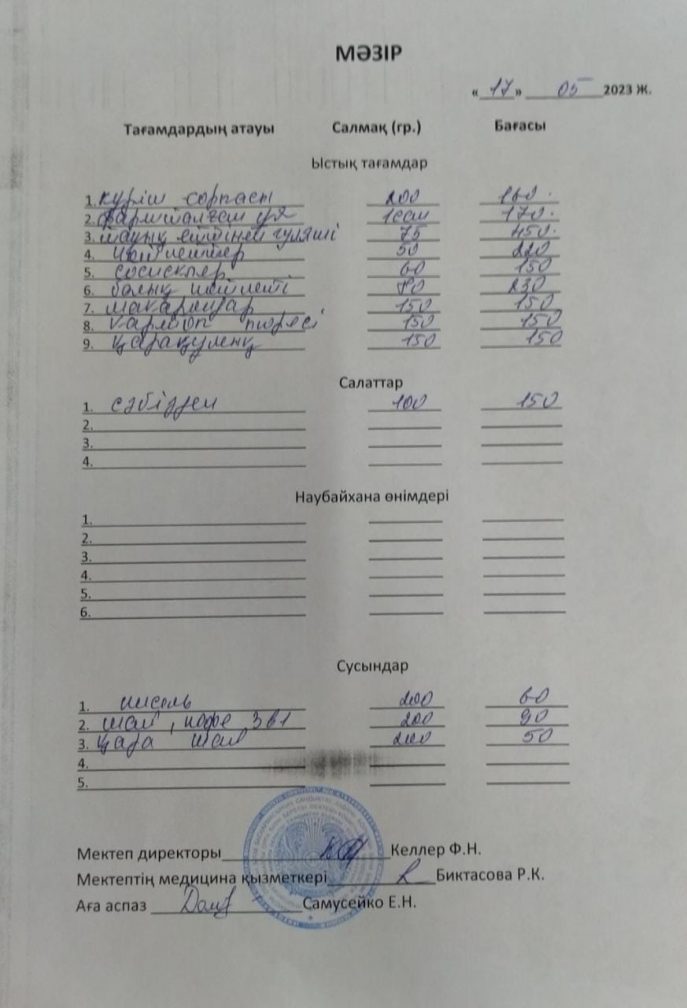 МӘЗІР
« 17 » 05 2023 Ж.
Тағамдардың атауы Салмақ (гр.) Бағасы
Ыстық тағамдар
1. күріш сорпасы 200 160.
2. уя 170.
3. тауық етінен гуляші 75 450.
4. 50 220
5. сосискілер 60 150
6. балық 80 230
7. макарондар 150 150
8. картоп пюресі 150 150
9. 150 150
Салаттар
1. сәбізден 100 150
2.
3.
4.
Наубайхана өнімдері
1.
2.
3.
4.
5.
6.
Сусындар
1. кисель 200 60
2. шай, кофе 3в1 200 90
3. қара шай 200 50
4.
5.
Мектеп директоры Келлер Ф.Н.
Мектептің медицина қызметкері Биктасова Р.К.
Аға аспаз Самусейко Е.Н.